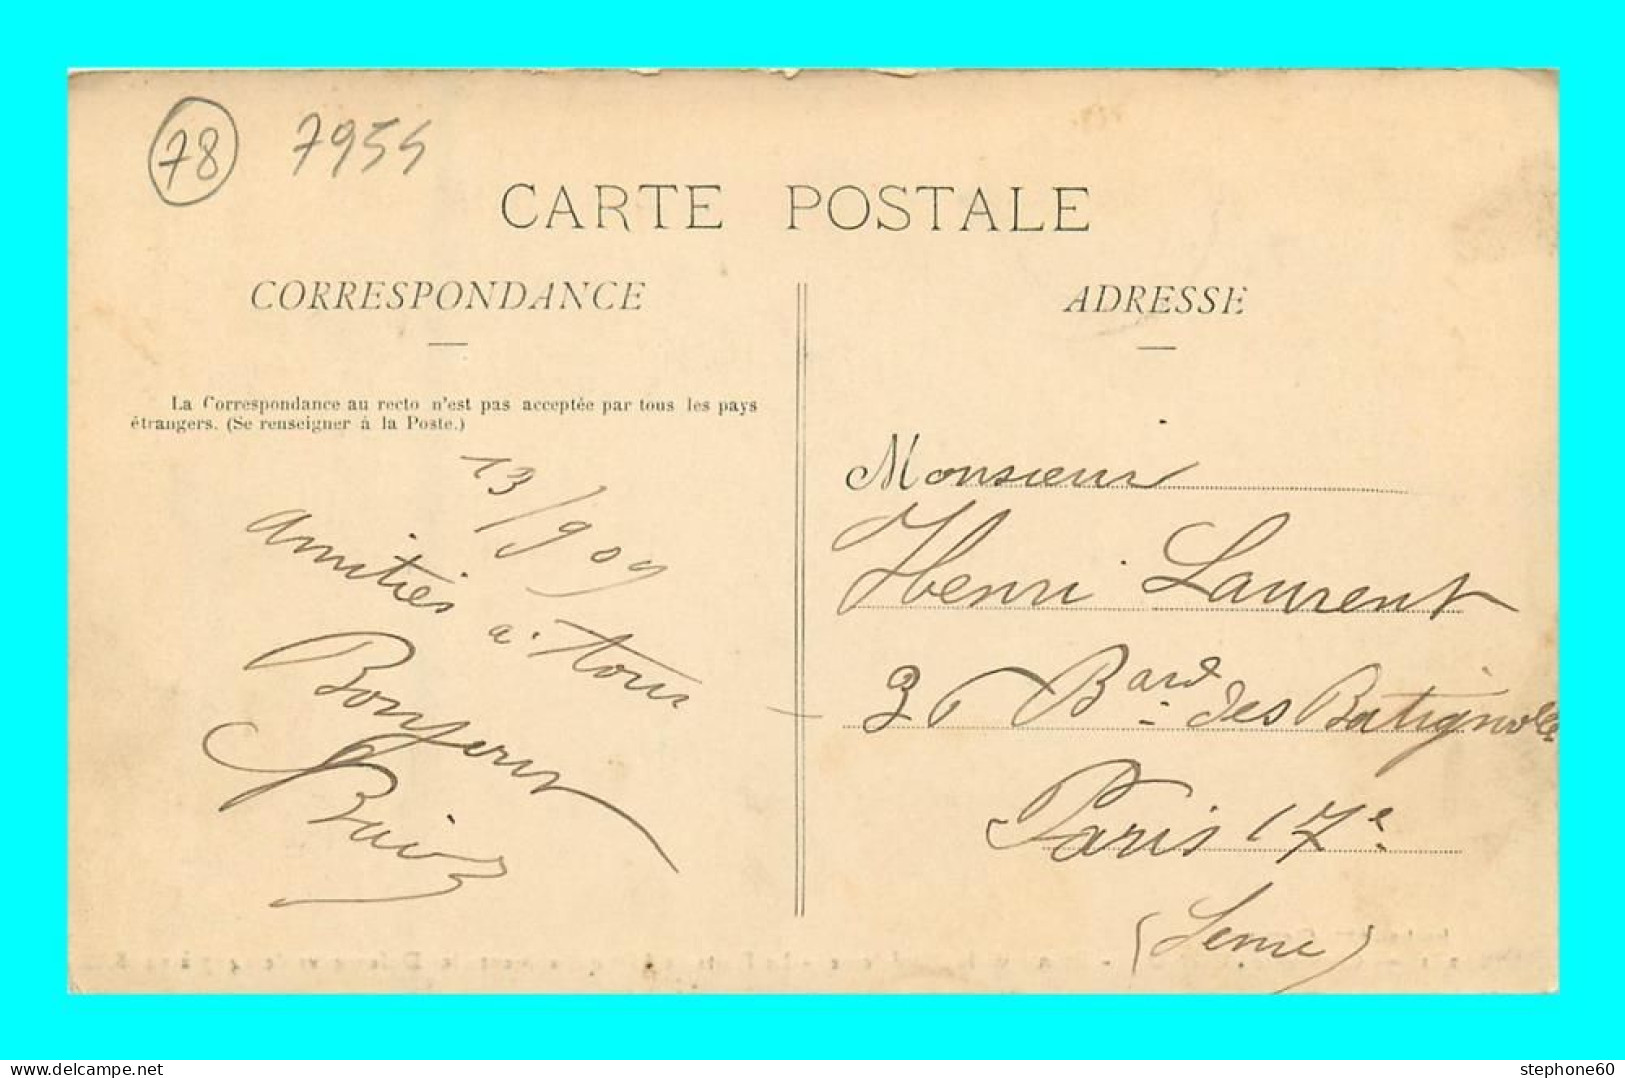 78 7955
CARTE POSTALE
CORRESPONDANCE
La Correspondance au recto n'est pas acceptée par tous les pays
étrangers. (Se renseigner à la Poste.)
13/9 09
amitiés
a tous
Bonjour
ADRESSE
Monsieur
Henri Laurent
36 Bard des Batignolles
Paris 17e
(Seine)
stephone60